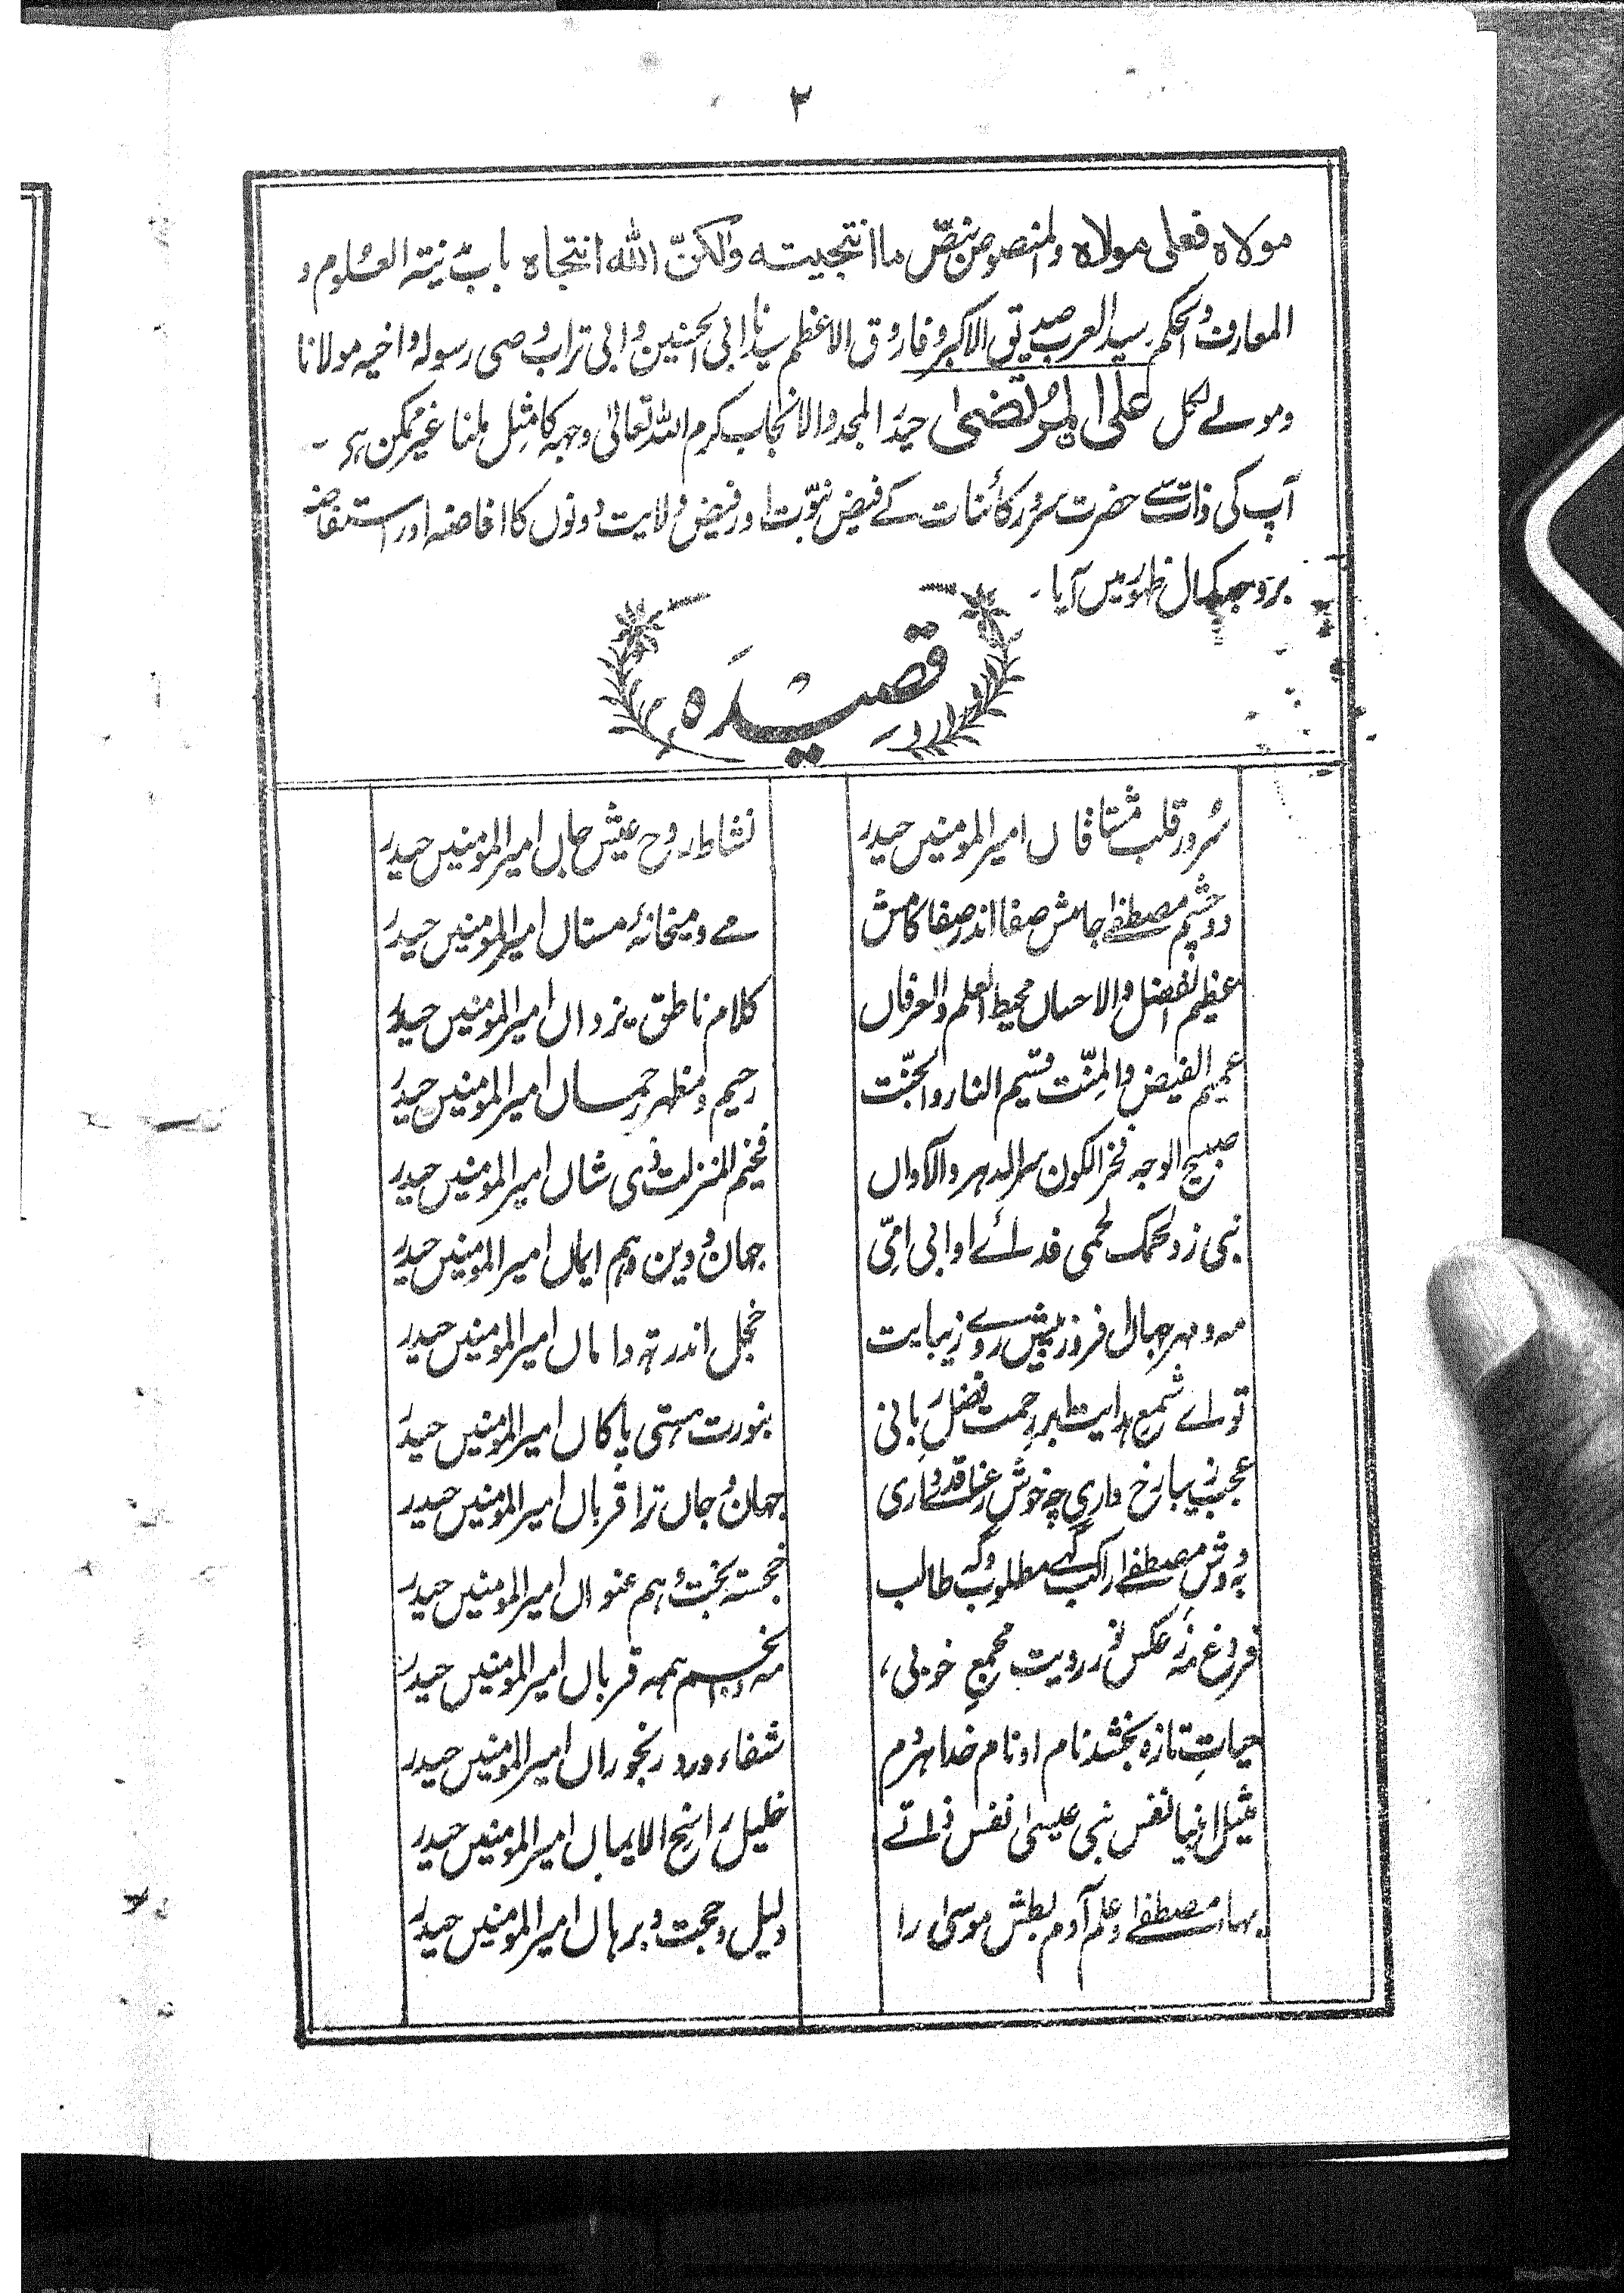 ۲
مولاہ فعلی مولاہ والمنصوص بنصّ ما انتجیتہ ولکنّ اللہ انتجاہ باب مدینۃ العلوم و
المعارف والحکم سید العرب صدیق الاکبر و فاروق الاعظم سیدنا ابی الحسنین و ابی تراب وصی رسولہ و اخیہ مولانا
و مولے الکل علی المرتضیٰ حیدر المجد والانجاب کرم اللہ تعالیٰ وجہہ کا مثل ملنا غیر ممکن ہے ۔
آپ کی ذات سے حضرت سرور کائنات کے فیض نبوّت اور فیض ولایت دونوں کا افاضہ اور استفاضہ
بروجہ کمال ظہور میں آیا ۔
قصیدہ
سُرور قلب مشتاقاں امیر المومنیں حیدر نشاط روح عیش جاں امیر المومنیں حیدر
دو چشم مصطفےٰ جامش صفا اندر صفا کامش مے و میخانۂ مستاں امیر المومنیں حیدر
عظیم الفضل والاحساں محیط العلم والعرفاں کلام ناطق یزداں امیر المومنیں حیدر
عمیم الفیض والمنّت قسیم النار والجنّت رحیم و مظہر رحمساں امیر المومنیں حیدر
صبیح الوجہ فخر الکون سر الدہر والاکواں فخیم المنزلت ذی شاں امیر المومنیں حیدر
نبی زد لحمک لحمی فدائے او ابی امّی جہان و دین و ہم ایماں امیر المومنیں حیدر
مہ و مہر جہاں افروز پیش روے زیبایت خجل اندر تہ داماں امیر المومنیں حیدر
تو اے شمع ہدایت ابر رحمت فضل ربانی بنورت ہستی پاکاں امیر المومنیں حیدر
عجب زیبا رخ داری چہ خوش رعنا قدے داری جہان و جاں ترا قرباں امیر المومنیں حیدر
بہ دوش مصطفےٰ راکب گہے مطلوب و گہ طالب خجستہ بخت و ہم عنواں امیر المومنیں حیدر
فروغ مہ ز عکس نور رویت مجمع خوبی، مہ و انجم ہمہ قرباں امیر المومنیں حیدر
حیاتِ تازہ بخشد نام او نام خدا ہر دم شفاء درد رنجوراں امیر المومنیں حیدر
مثیل انبیا نفس نبی عیسیٰ نفس ذاتے خلیل راسخ الایماں امیر المومنیں حیدر
بہاء مصطفےٰ و علم آدم بطش موسیٰ را دلیل و حجت و برہاں امیر المومنیں حیدر